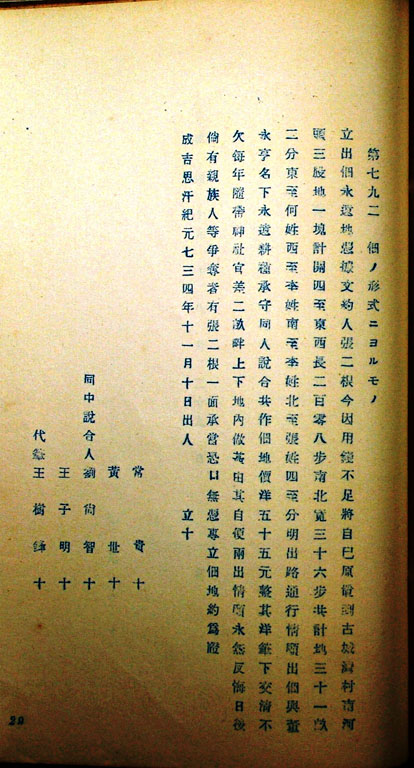 第七九二 佃ノ形式ニヨルモノ
立出佃永遠地憑據文約人張二根今因用錢不足將自已原置到古城灣村南河
頭三股地一塊計開四至東西長二百零八步南北寬三十六步共計地三十一畝
二分東至何姓西至李姓南至李姓北至張姓四至分明出路通行情願出佃與董
永亨名下永遠耕種承守同人說合共作佃地價洋五十五元整其洋筆下交清不
欠每年隨帶神社官差二畝畔上下地內做塋由其自便兩出情願永無反悔日後
倘有親族人等爭奪者有張二根一面承當恐口無憑專立佃地約為證
成吉思汗紀元七三四年十一月十日出人 立十
常貴十
黃世十
同中說合人劉尚智十
王子明十
代筆王樹鐸十
29